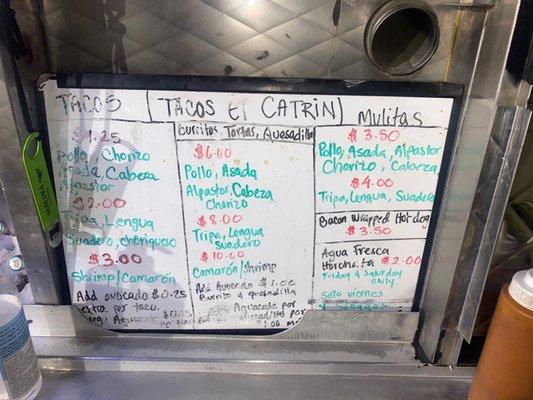 TACOS
$1.25
Pollo, Chorizo
Asada, Cabeza
Alpastor
$2.00
Tripa, Lengua
Suadero, choriqueso
$3.00
Shrimp/Camarón
Add avocado $0.25
extra. per taco
$0.25
TACOS El CATRIN
Burritos, Tortas, Quesadilla
$6.00
Pollo, Asada
Alpastor, Cabeza
Chorizo
$8.00
Tripa, Lengua
Suadero
$10.00
Camarón/Shrimp
Add Avocado $1.00
Burrito & quesadilla
Agregate por
por
$1.00
Mulitas
$3.50
Pollo, Asada, Alpastor
Chorizo, Cabeza,
$4.00
Tripa, Lengua, Suadero
Bacon Wrapped Hot dog
$3.50
Agua Fresca
Horchata $2.00
Friday & Saturday
ONLY
Solo viernes
y Sabados